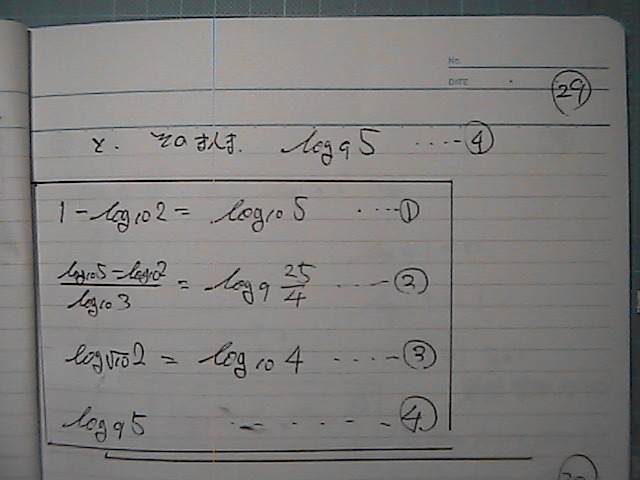 No.
DATE
29
と. そのままは. log₉5 ‥‥④
1 - log₁₀2 = log₁₀5 ‥‥①
(log₁₀5 - log₁₀2)/(log₁₀3) = log₉ 25/4 ‥‥②
log√₁₀2 = log₁₀4 ‥‥③
log₉5 ‥‥‥④